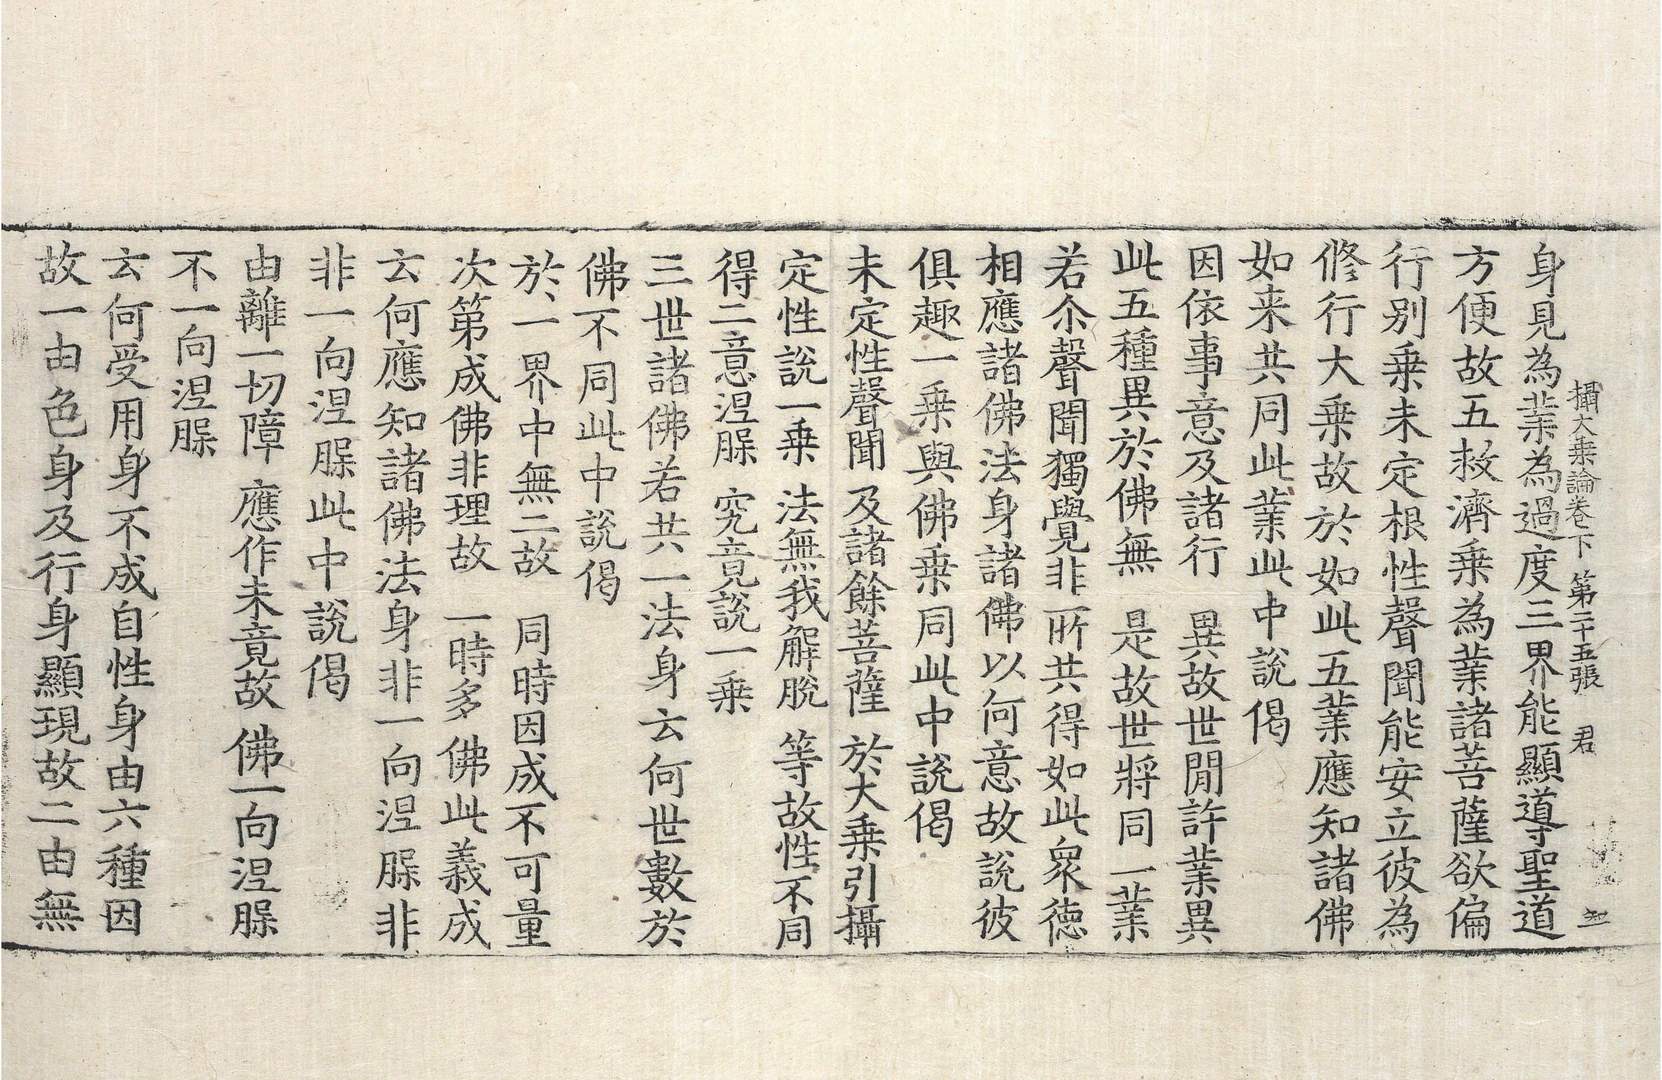 攝大乗論卷下 第二十五張 君
身見為業為過度三界能顯導聖道
方便故五救濟乗為業諸菩薩欲偏
行别乗未定根性聲聞能安立彼為
修行大乗故於如此五業應知諸佛
如来共同此業此中說偈
因依事意及諸行 異故世間許業異
此五種異於佛無 是故世將同一業
若尒聲聞獨覺非所共得如此衆徳
相應諸佛法身諸佛以何意故說彼
俱趣一乗與佛乗同此中說偈
未定性聲聞 及諸餘菩薩 於大乗引攝
定性說一乗 法無我解脫 等故性不同
得二意涅槃 究竟說一乗
三世諸佛若共一法身云何世數於
佛不同此中說偈
於一界中無二故 同時因成不可量
次第成佛非理故 一時多佛此義成
云何應知諸佛法身非一向涅槃非
非一向涅槃此中說偈
由離一切障 應作未竟故 佛一向涅槃
不一向涅槃
云何受用身不成自性身由六種因
故一由色身及行身顯現故二由無